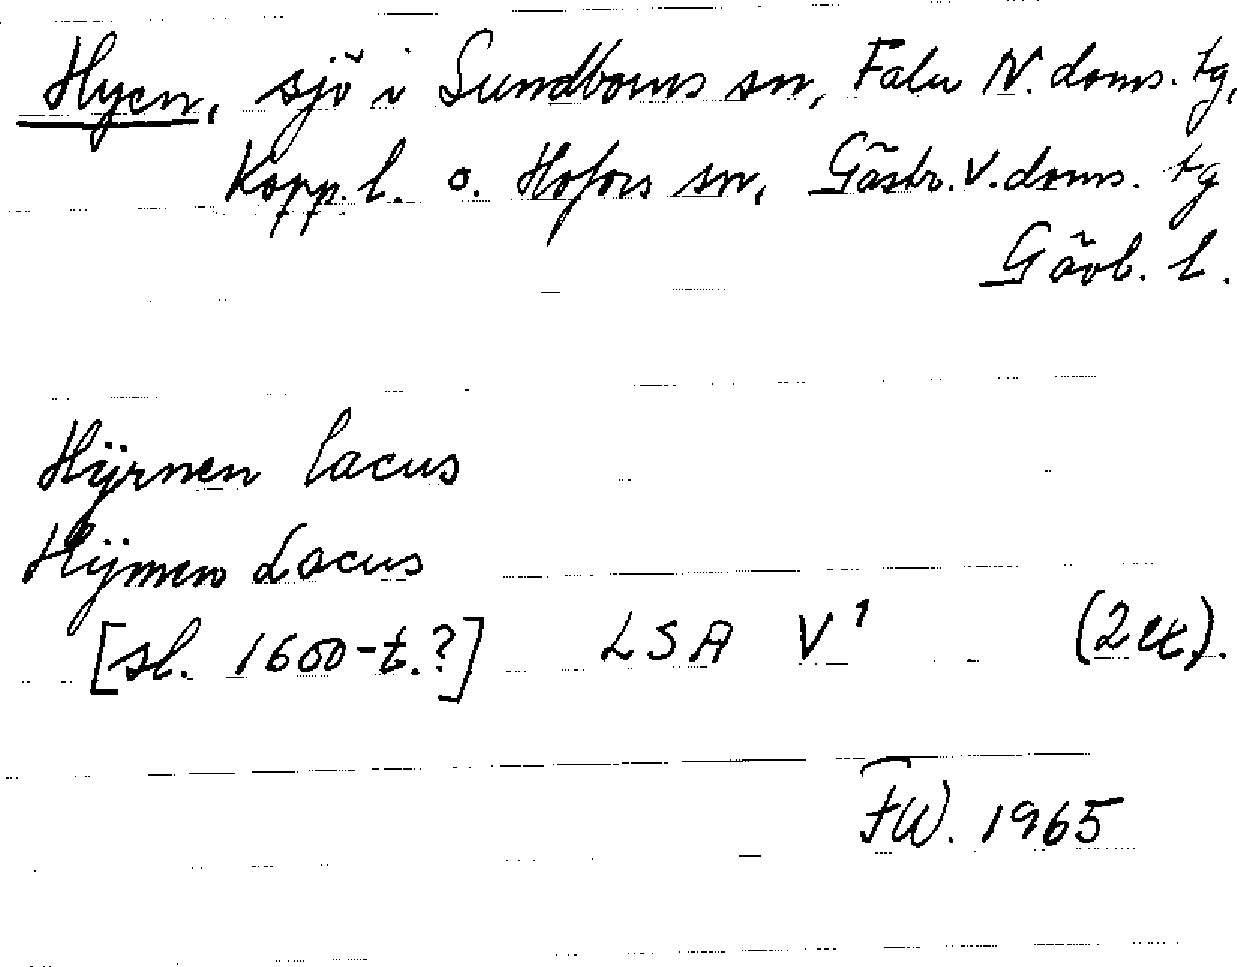 Hyen, sjö i Sundborns sn, Falu N. doms. tg,
Kopp. l. o. Hofors sn, Gästr. V. doms. tg
Gävb. l.
Hÿrnen lacus
Hÿrnen Lacus
[sl. 1600-t.?] LSA V¹ (2 ex.).
FW. 1965